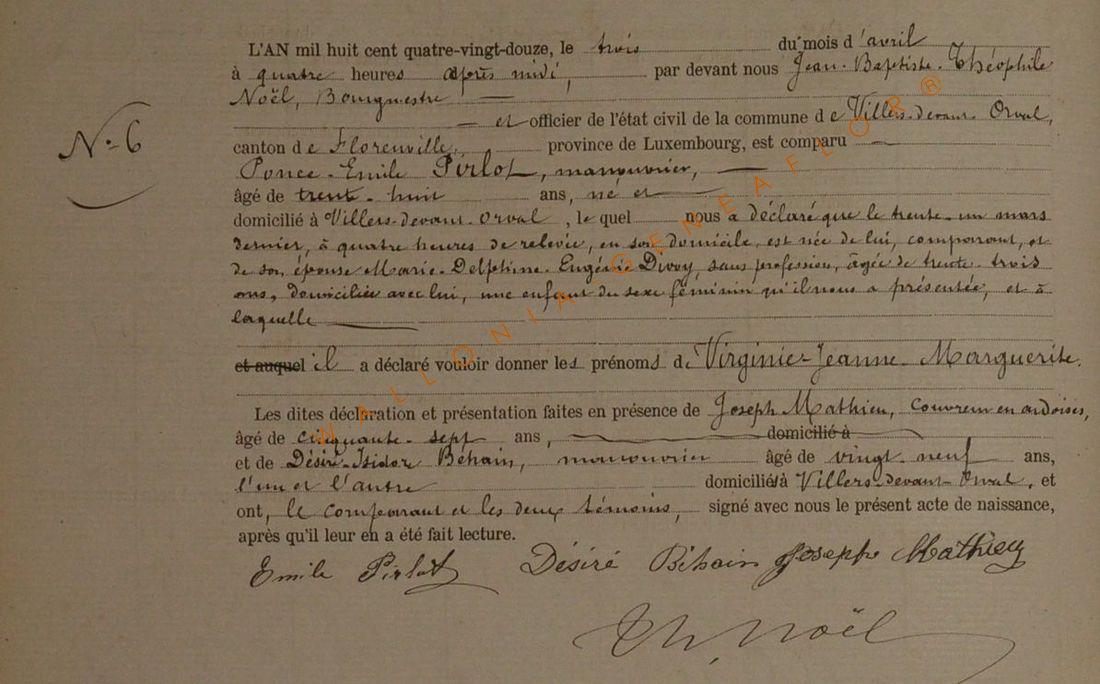 L'AN mil huit cent quatre-vingt-douze, le trois du mois d'avril
à quatre heures après midi, par devant nous Jean-Baptiste-Théophile
Noël, Bourgmestre
et officier de l'état civil de la commune de Villers-devant-Orval,
N° 6
canton de Florenville, province de Luxembourg, est comparu
Ponce-Emile Pirlot, manouvrier,
âgé de trente-huit ans, né et
domicilié à Villers-devant-Orval, le quel nous a déclaré que le trente-un mars
dernier, à quatre heures de relevée, en son domicile, est née de lui, comparant, et
de son épouse Marie-Delphine-Eugénie Divoy, sans profession, âgée de trente-trois
ans, domiciliée avec lui, une enfant du sexe féminin qu'il nous a présentée, et à
laquelle
et auquel il a déclaré vouloir donner les prénoms de Virginie-Jeanne-Marguerite.
Les dites déclaration et présentation faites en présence de Joseph Mathieu, couvreur en ardoises,
âgé de cinquante-sept ans, domicilié à
et de Désiré-Isidore Béhain, manouvrier âgé de vingt-neuf ans,
l'un et l'autre domiciliés à Villers-devant-Orval, et
ont, le comparant et les deux témoins, signé avec nous le présent acte de naissance,
après qu'il leur en a été fait lecture.
Emile Pirlot Désiré Béhain Joseph Mathieu
Th. Noël
WALLONIA GENEAFLOR®